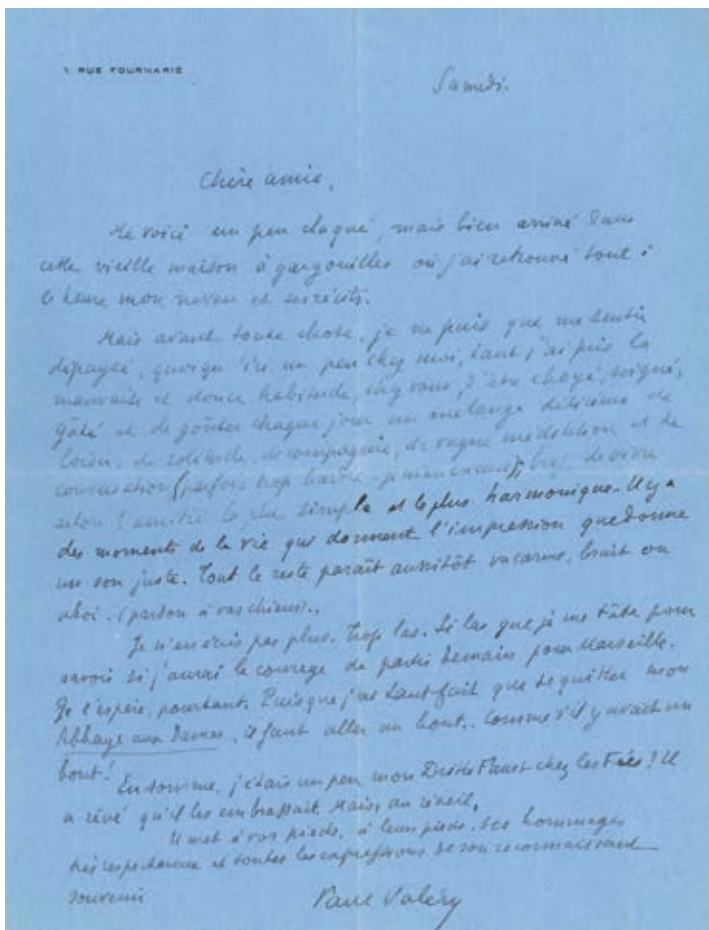 1 RUE FOURNARIÉ
Samedi.
Chère amie,
Me voici un peu claqué, mais bien arrivé dans
cette vieille maison à gargouilles où j'ai retrouvé tout à
l'heure mon neveu et ses récits.
Mais avant toute chose, je ne puis que me sentir
dépaysé, quoiqu'ici un peu chez moi, tant j'ai pris la
mauvaise et douce habitude, chez vous, d'être choyé, soigné,
gâté et de goûter chaque jour un mélange délicieux de
loisir, de solitude, de compagnie, de vague méditation et de
conversation (parfois trop hardie - je m'en excuse); bref, de vivre
selon l'amitié la plus simple et la plus harmonique. Il y a
des moments de la vie qui donnent l'impression que donne
un son juste. Tout le reste paraît aussitôt vacarme, bruit ou
aboi. (pardon à vos chiens)..
Je n'en écris pas plus. Trop las. Si las que je me tâte pour
savoir si j'aurai le courage de partir demain pour Marseille.
Je l'espère, pourtant. Puisque j'ai tant fait que de quitter mon
Abbaye aux Dames, il faut aller au bout.. Comme s'il y avait un
bout!
En somme, j'étais un peu mon Dr Faust chez les Fées! Il
a rêvé qu'il les embrassait. Mais, au réveil,
Il met à vos pieds, à leurs pieds, ses hommages
très respectueux et toutes les expressions de son reconnaissant
souvenir
Paul Valéry